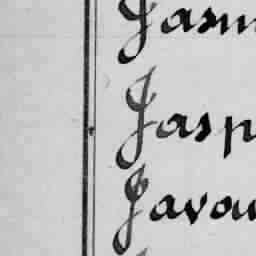 Jasm
Jasp
Javou